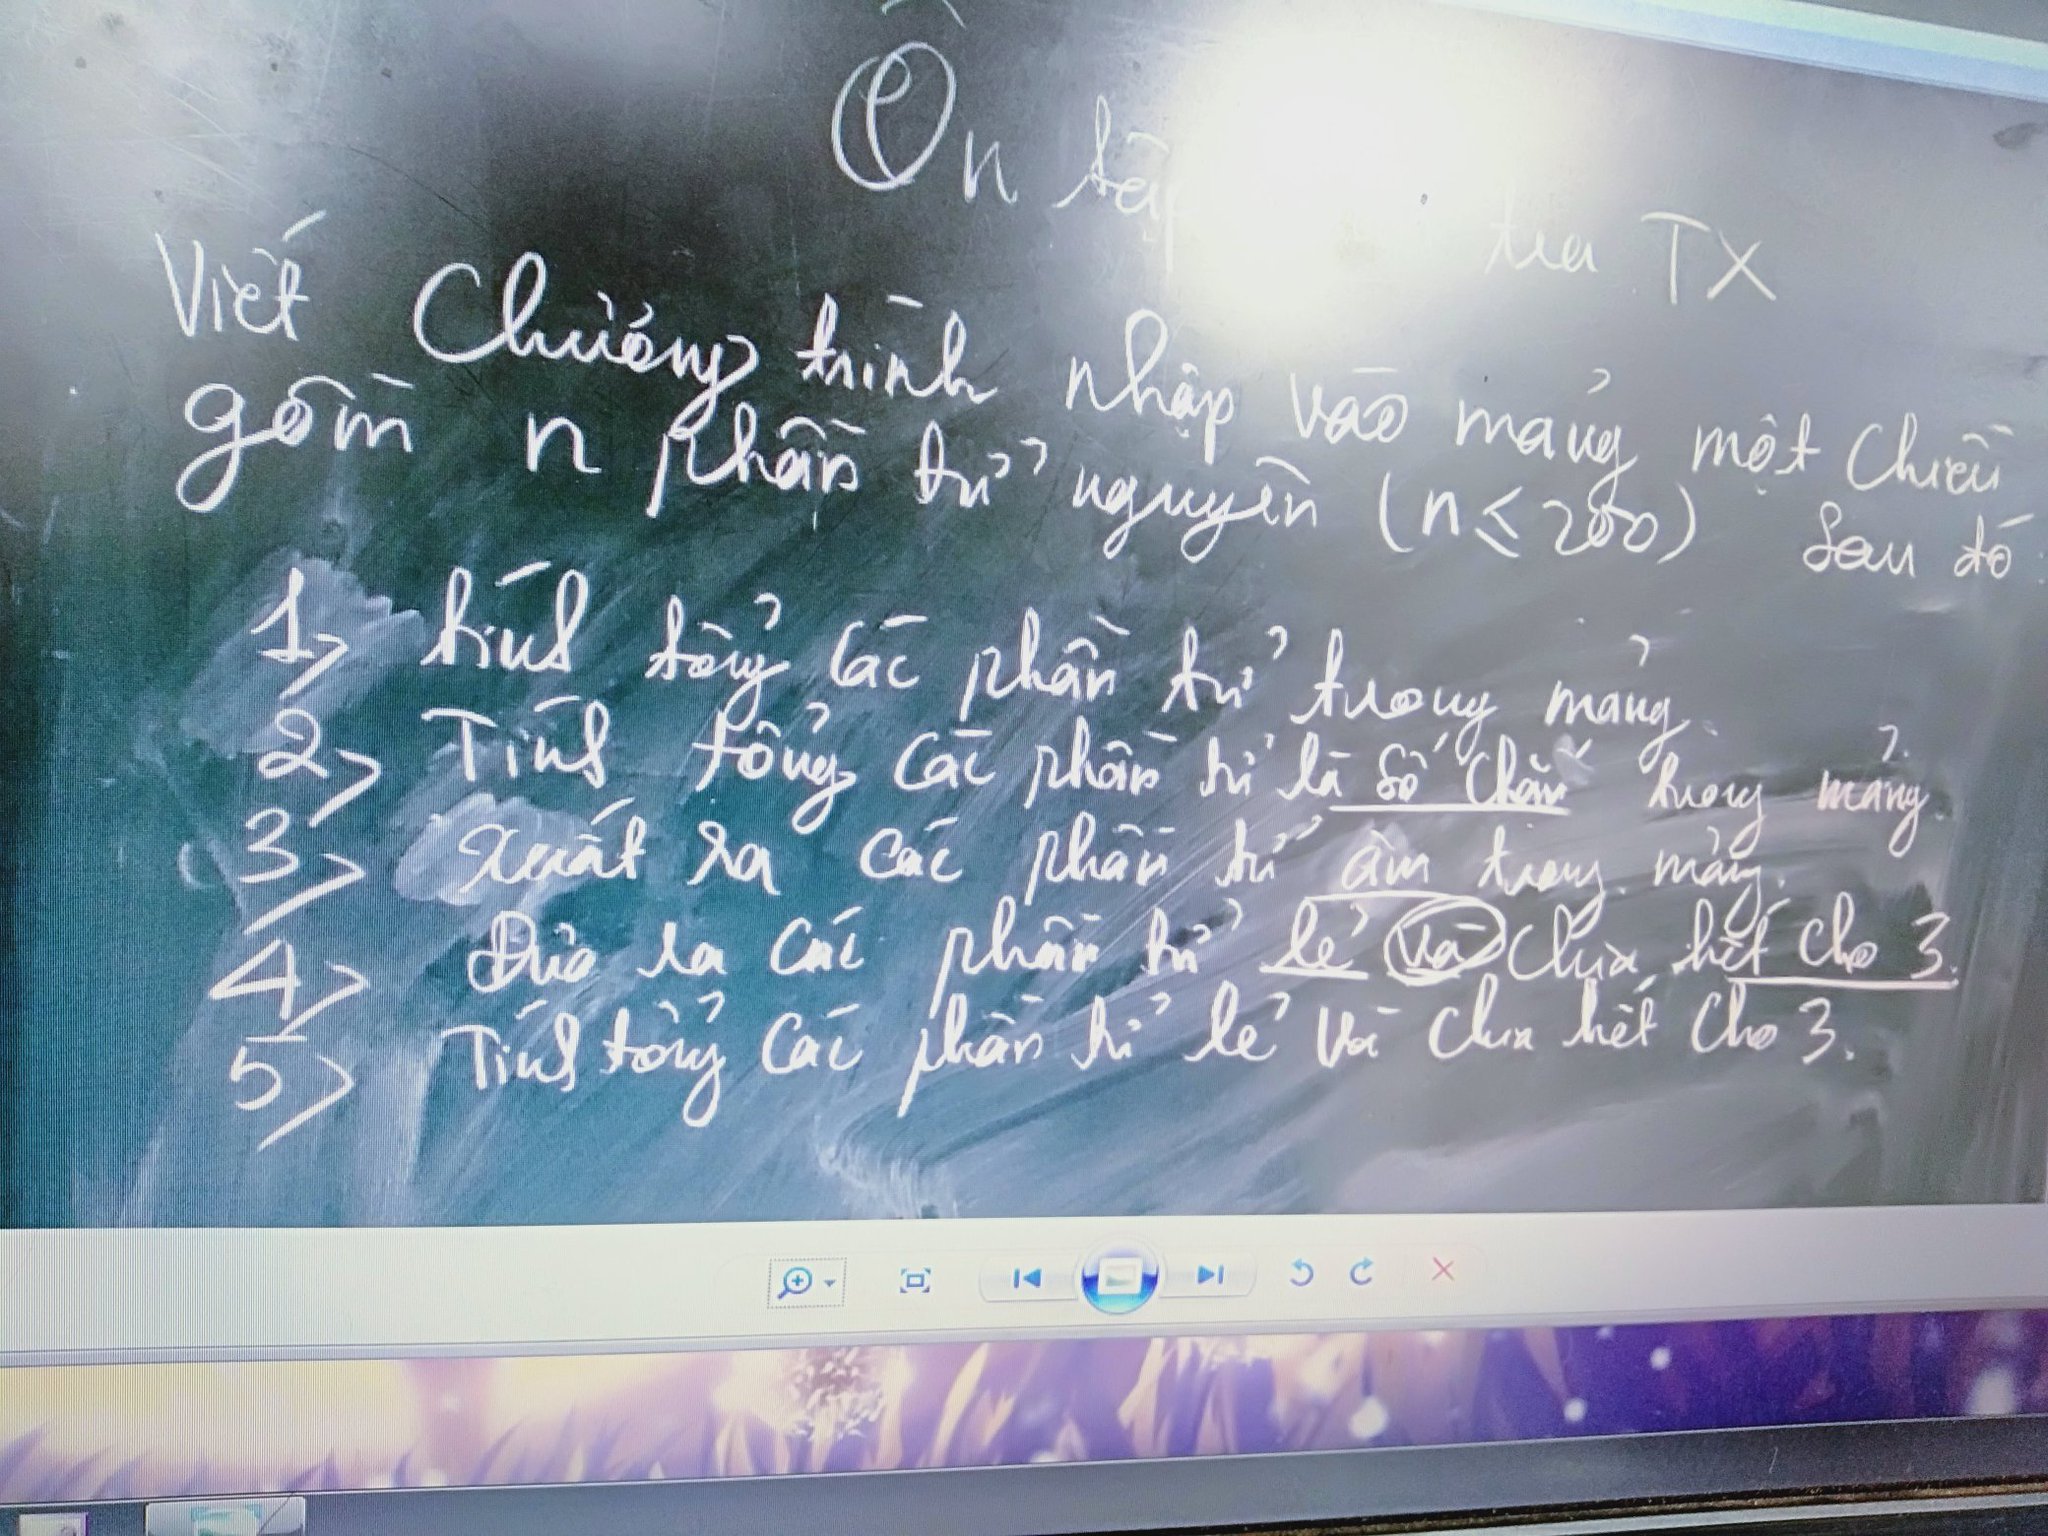 Ôn tập tra TX
Viết Chương trình nhập vào mảng một chiều
gồm n phần tử nguyên (n ≤ 200) Sau đó
1> tính tổng các phần tử trong mảng
2> Tính tổng các phần tử là số chẵn trong mảng.
3> Xuất ra các phần tử âm trong mảng.
4> Đưa ra các phần tử lẻ và chia hết cho 3.
5> Tính tổng các phần tử lẻ và chia hết cho 3.